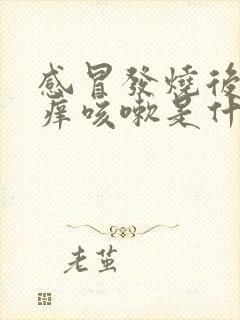 感冒發燒後
痒咳嗽是什
老茧